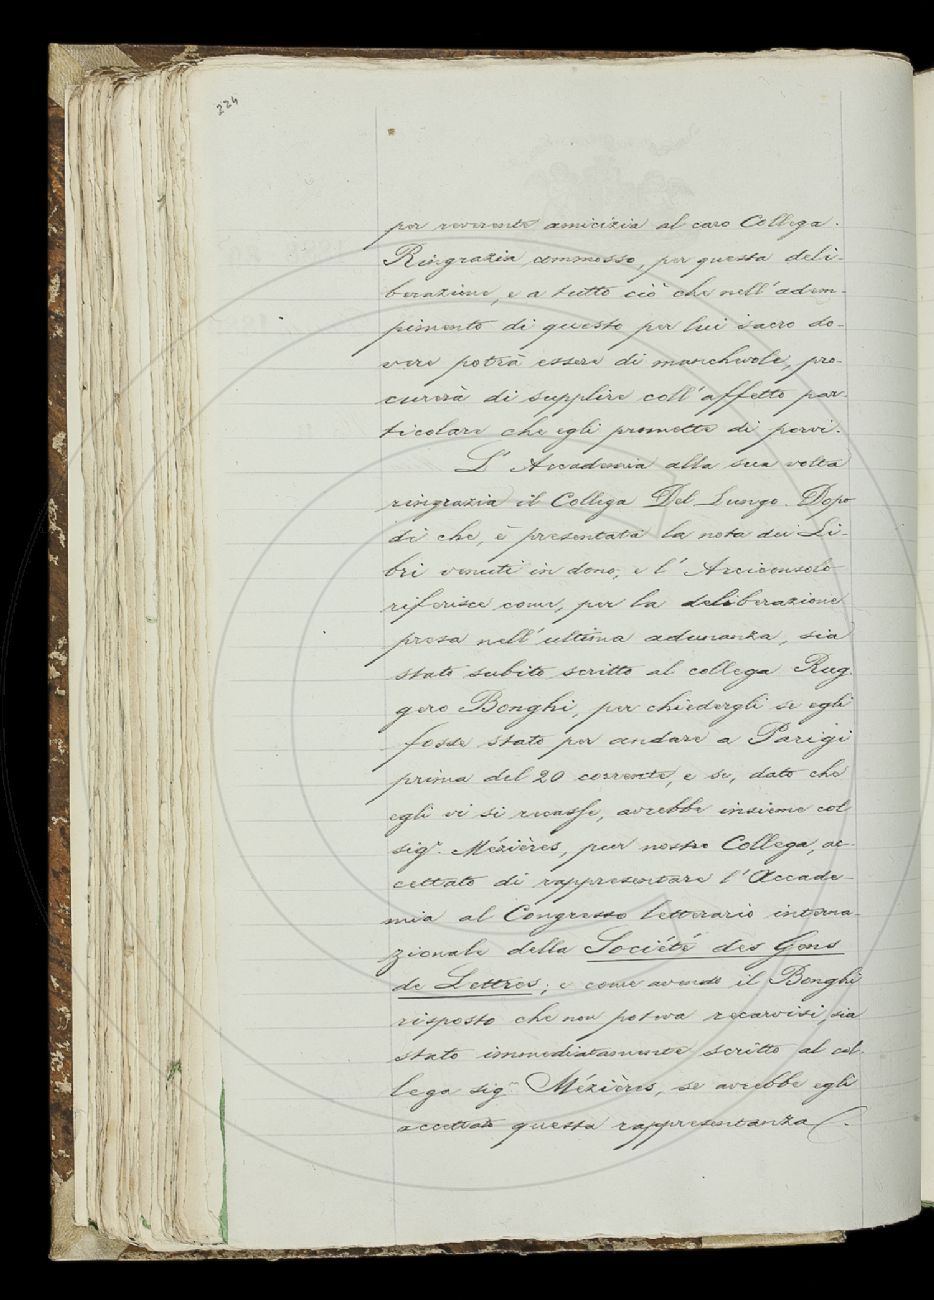 224
per reverente amicizia al caro Collega.
Ringrazia commosso, per questa deli-
berazione, e a tutto ciò che nell'adem-
pimento di questo per lui sacro do-
vere potrà essere di manchevole, pro-
curerà di supplire coll'affetto par-
ticolare che egli promette di porvi.
L'Accademia alla sua volta
ringrazia il Collega Del Lungo. Dopo
di che, è presentata la nota dei Li-
bri venuti in dono, e l'Arciconsolo
riferisce come, per la deliberazione
presa nell'ultima adunanza, sia
stato subito scritto al collega Rug
gero Bonghi, per chiedergli se egli
fosse stato per andare a Parigi
prima del 20 corrente, e se, dato che
egli vi si recasse, avrebbe insieme col
sigr. Mézières, pur nostro Collega, ac-
cettato di rappresentare l'Accade-
mia al Congresso letterario interna-
zionale della Société des Gens
de Lettres; e come avendo il Bonghi
risposto che non poteva recarvisi, sia
stato immediatamente scritto al col
lega sigr. Mézières, se avrebbe egli
accettato questa rappresentanza.